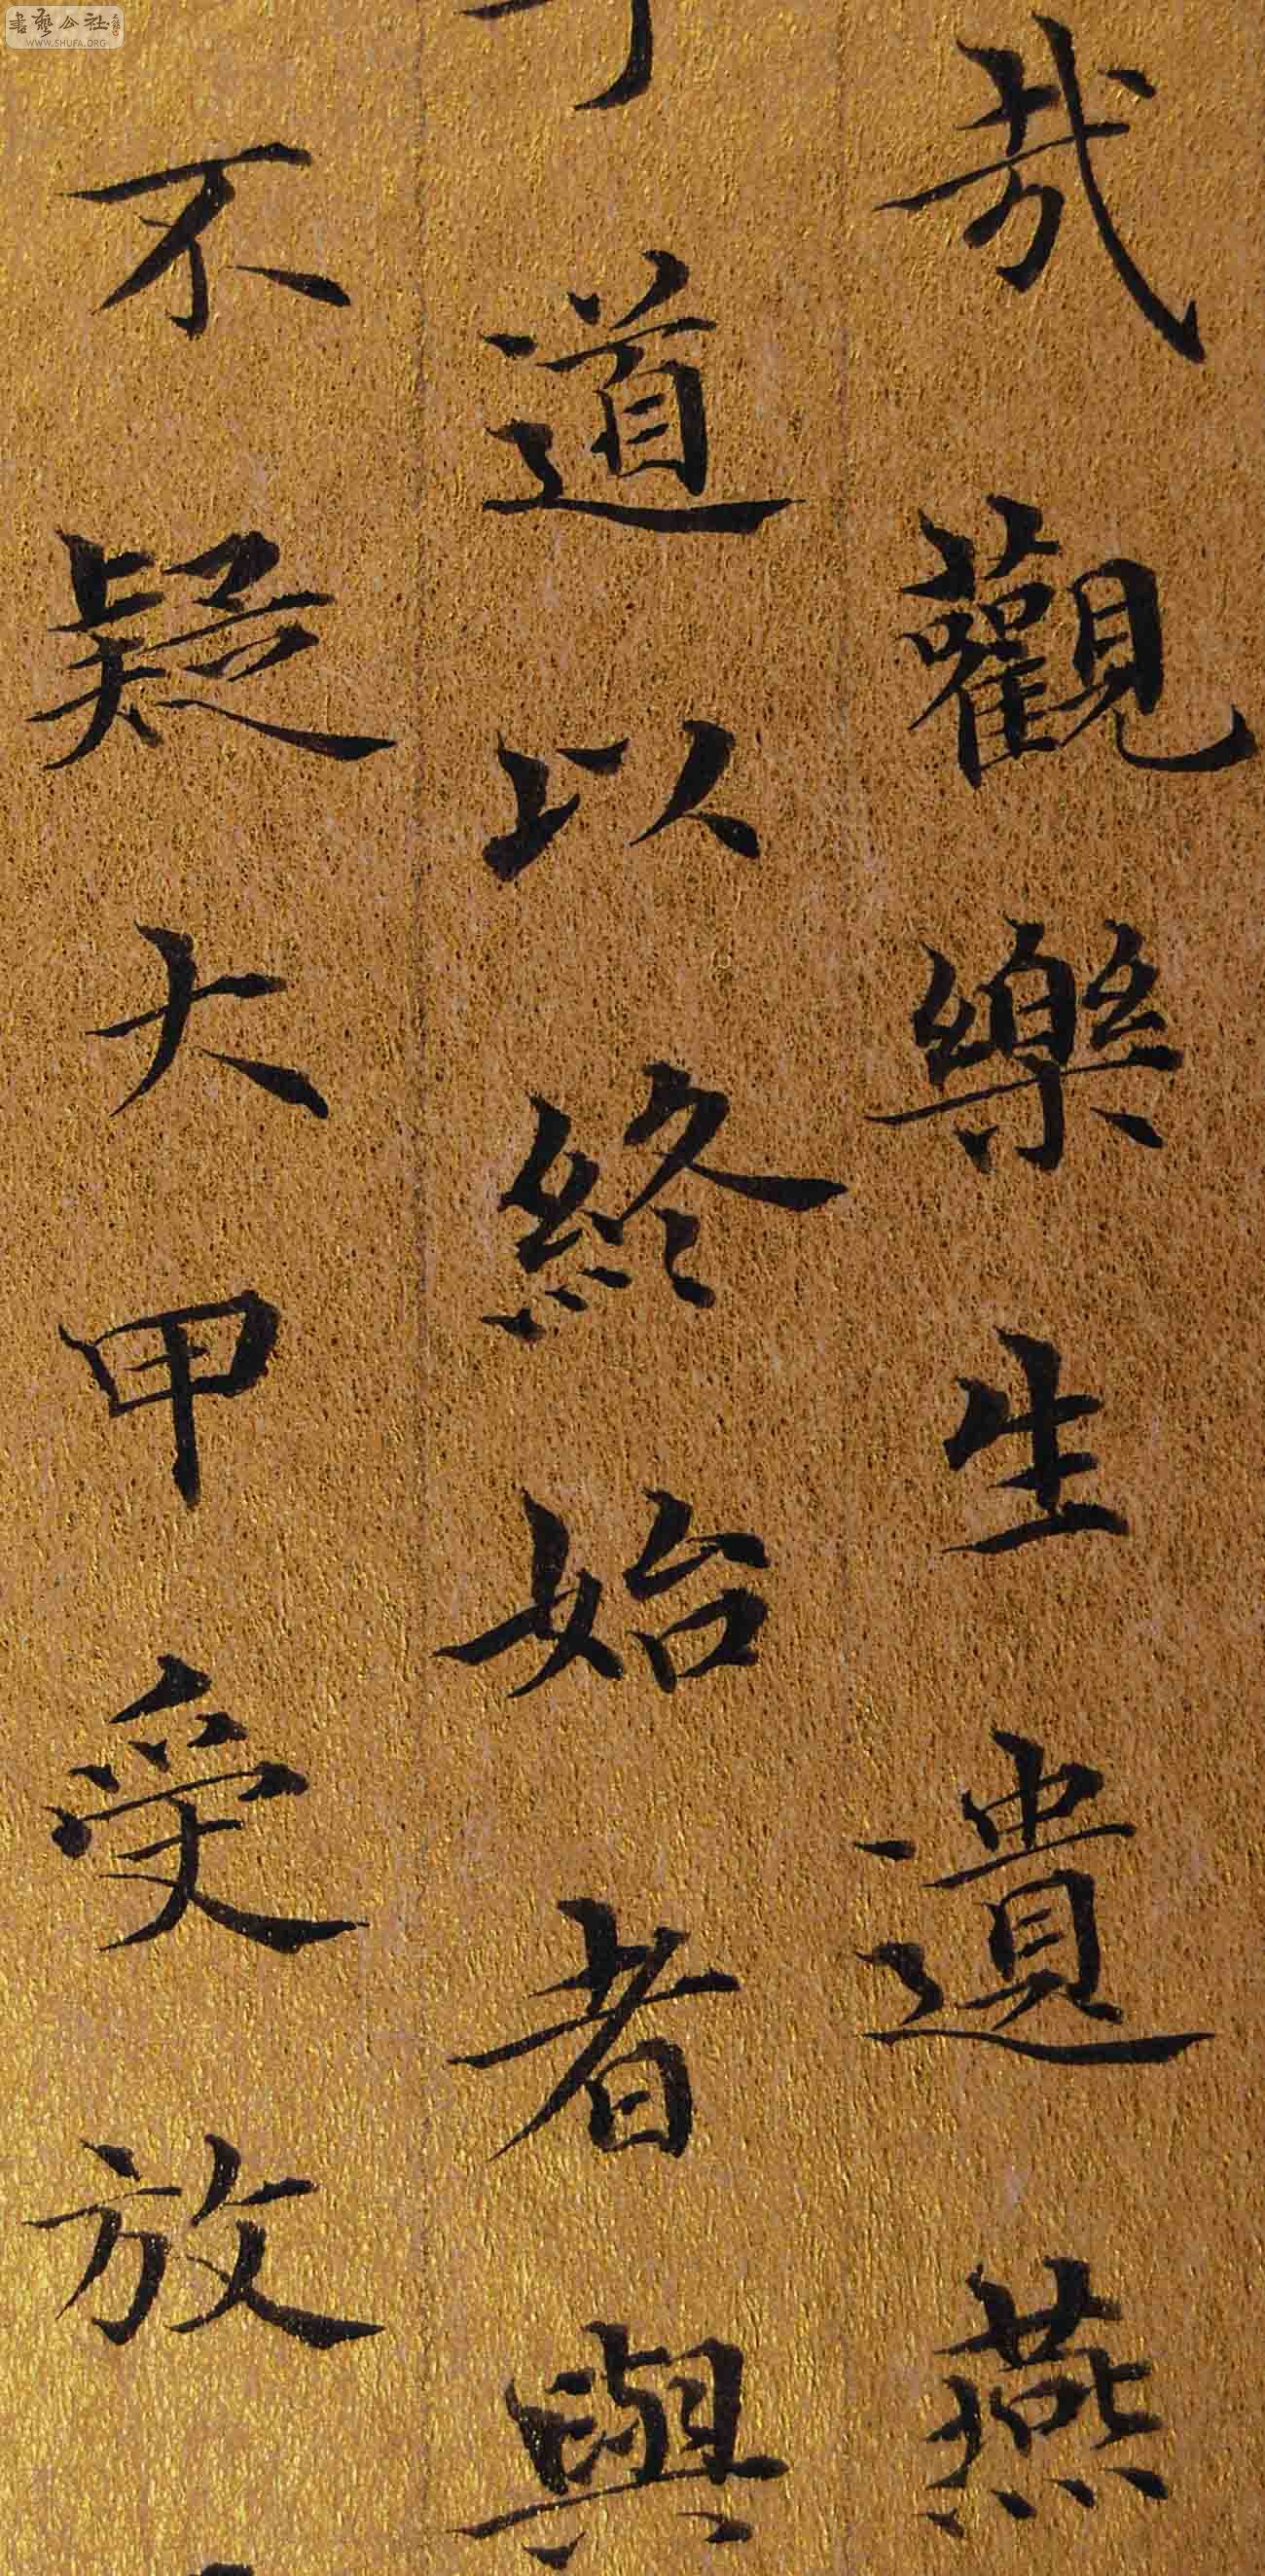 哉觀樂生遺燕
道以終始者與
不疑大甲受放
書藝公社
WWW.SHUFA.ORG